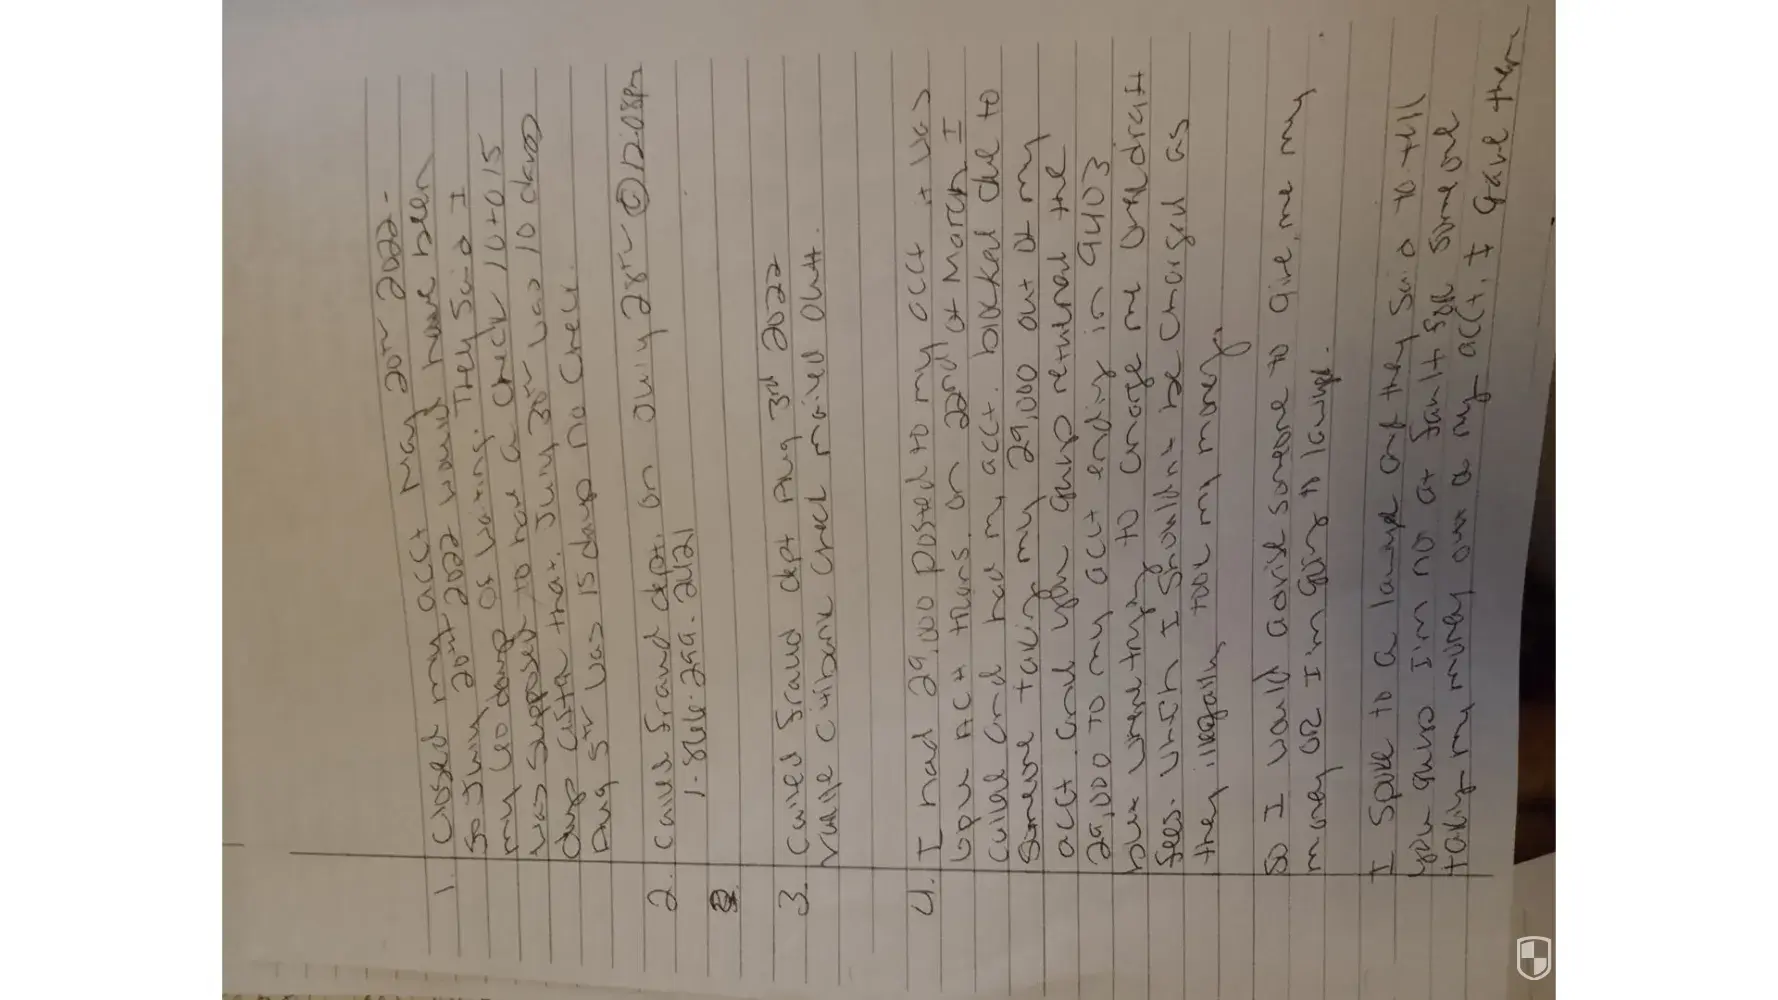 1. Closed my acct May 20th 2022 -
So July 20th 2022 would have been
my 60 days of waiting. They Said I
was supposed to have a check 10 to 15
days after that. July 30th was 10 days
Aug 5th was 15 days no check.
2. Called fraud dept. on July 28th @ 12:08pm
1-866-299-2421
3. Called fraud dept Aug 3rd 2022
Citibank check mailed out.
4. I had 29,000 posted to my acct it was
ACH trans. on 22nd of March I
called and had my acct. blocked due to
Someone taking my 29,000 out of my
acct and you guys returned the
29,000 to my acct ending in 9403
but were trying to charge me overdraft
fees. Which I Shouldn't be charged as
they illegally took my money.
So I would advise someone to give me my
money OR I'm going to lawyer.
I Spoke to a lawyer and they said to tell
you guys I'm not at fault for Someone
taking my money out of my acct, I gave them